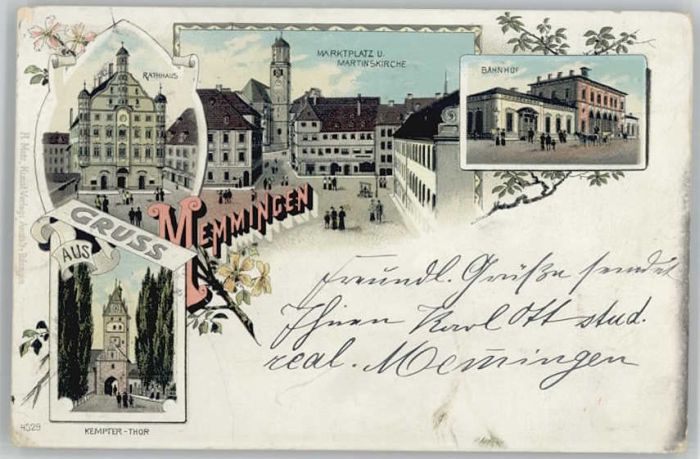 RATHHAUS
MARKTPLATZ U.
MARTINSKIRCHE
BAHNHOF
GRUSS
AUS
MEMMINGEN
KEMPTER-THOR
4529
Freundl. Grüße sendet
Ihnen Karl Ott stud.
real. Memingen